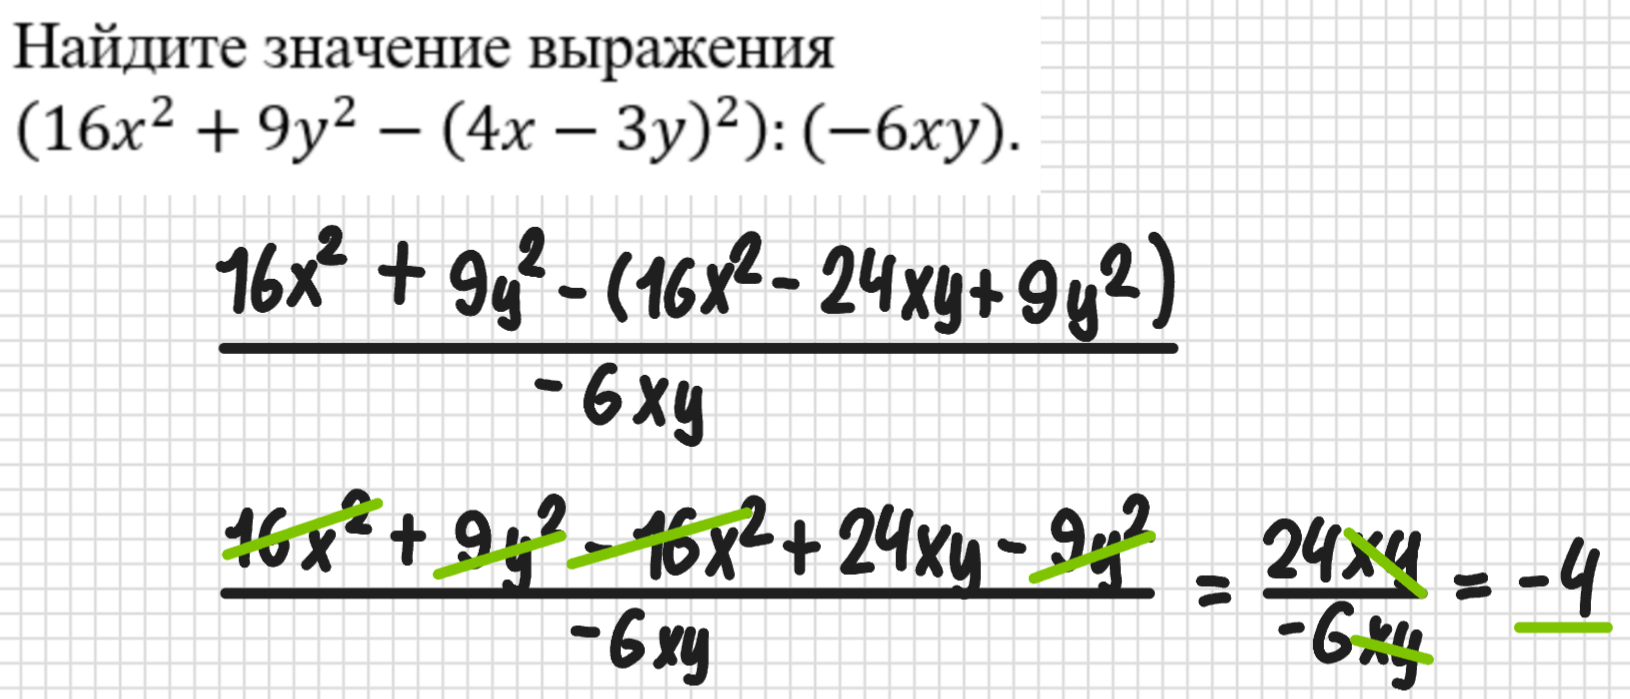 Найдите значение выражения
(16x² + 9y² − (4x − 3y)²): (−6xy).
16x² + 9y² - (16x² - 24xy + 9y²)
-6xy
16x² + 9y² - 16x² + 24xy - 9y² = 24xy = -4
-6xy -6xy